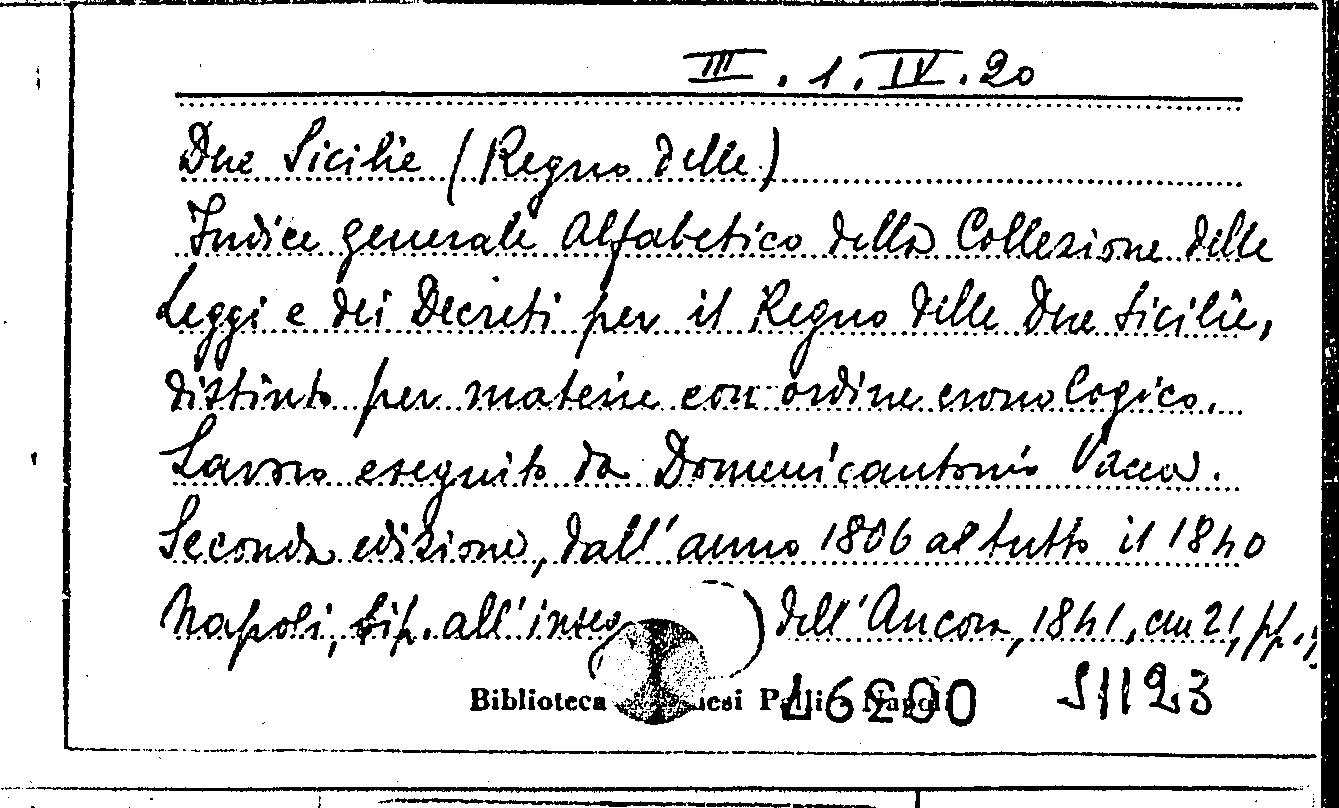 III. 1. IV. 20
Due Sicilie (Regno delle)
Indice generale alfabetico della Collezione delle
Leggi e dei Decreti per il Regno delle Due Sicilie,
distinto per materie con ordine cronologico.
Lavoro eseguito da Domenicantonio Vacca.
Seconda edizione, dall'anno 1806 a tutto il 1840
Napoli, tip. all'inseg dell'Ancora, 1841, cm 21, pp.
Biblioteca L6200 S1123